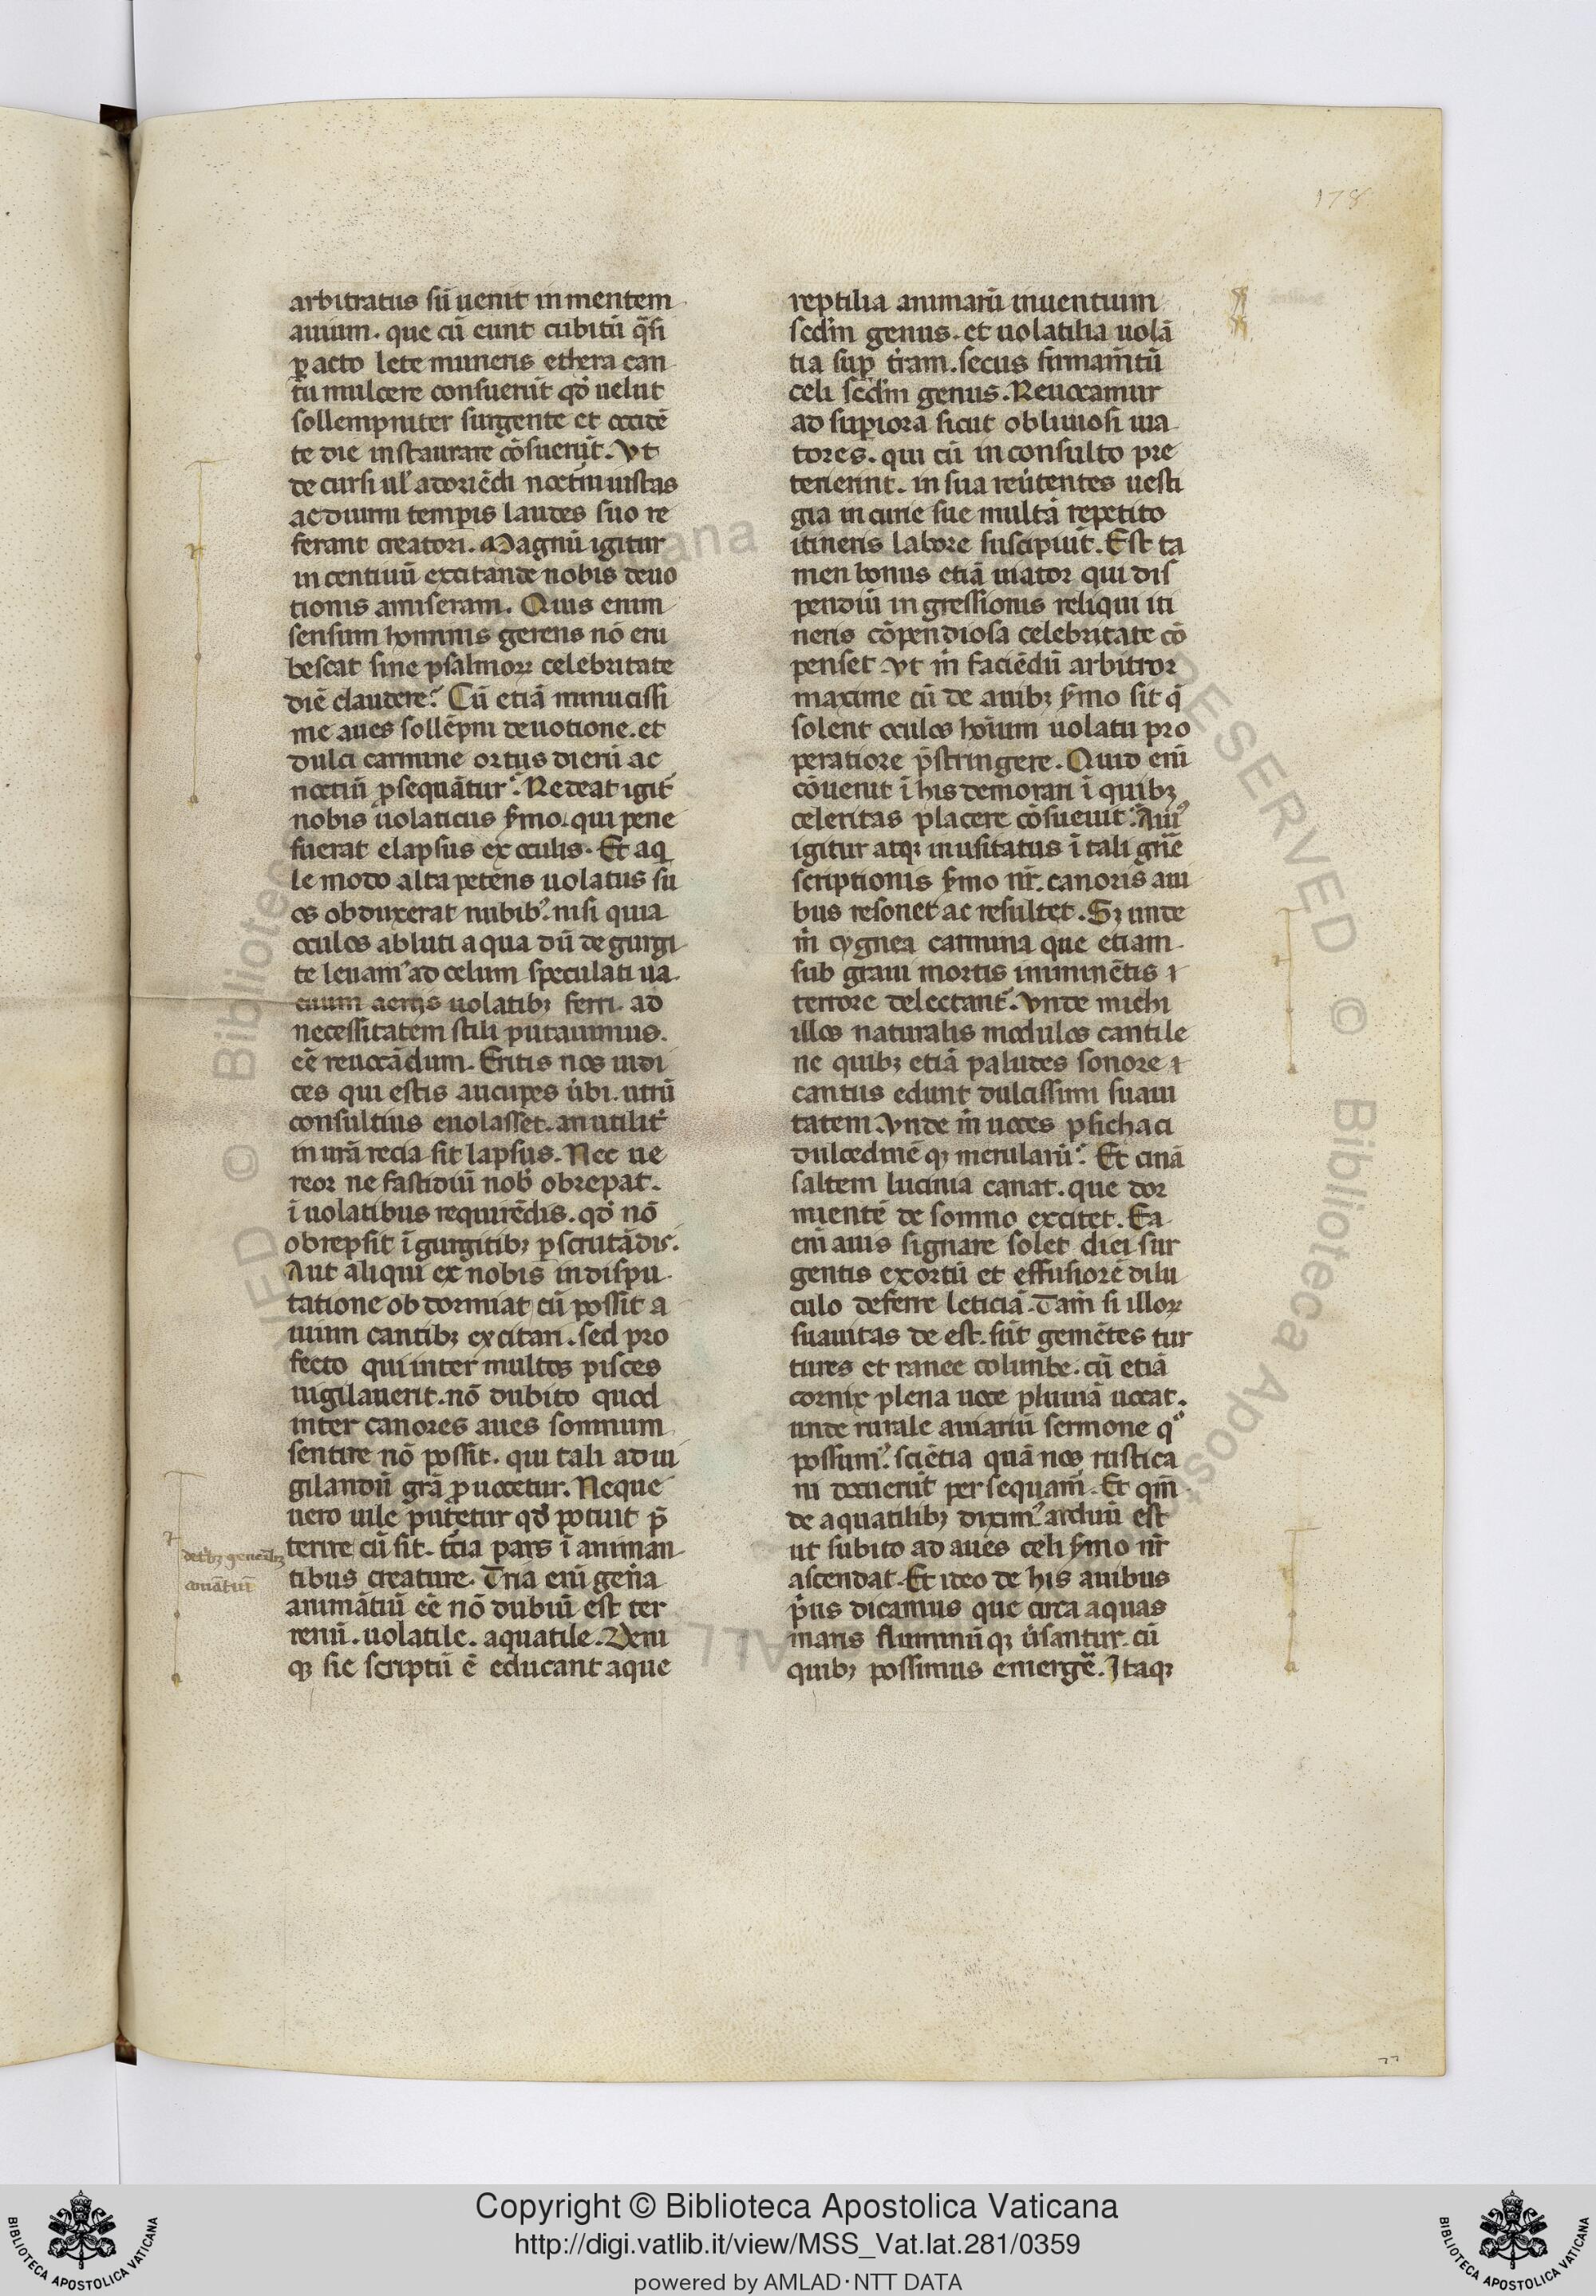 178
arbitratus sū uenit in mentem
auium. que cū eunt cubitū q̄si
ꝑacto lete muneris ethera can
tu mulcere consuerūt qđ uelut
sollempniter surgente et occidē
te die instaurare cōsuerūt. Vt
decursi ul' adoriēdi noctiū uistas
ac diurni temꝑis laudes suo re
ferant creatori. Magnū igitur
incentiuū excitande nobis deuo
tionis amiseram. Quis enim
sensum hominis gerens nō eru
bescat sine psalmoꝝ celebritate
diē claudere? Cū etiā minucissi
me aues sollēpni deuotione. et
dulci carmine ortus dierū ac
noctiū ꝓsequātur? Redeat igit'
nobis uolaticus s̄mo. qui pene
fuerat elapsus ex oculis. Et aq
le modo alta petens uolatus su
os obduxerat nubib'. nisi quia
oculos abluti aqua dū de gurgi
te leuam' ad celum speculati ua
cuum aerijs uolatibꝫ ferri. ad
necessitatem stili putauimus.
eē reuocādum. Eritis nos iudi
ces qui estis aucupes ūbi. utrū
consultius euolasset. an utilit'
in urā recia sit lapsus. Nec ue
reor ne fastidiū nob' obrepat.
ī uolatibus requirēdis. qđ nō
obrepsit ī gurgitibꝫ ꝑscrutādis.
Aut aliqui ex nobis in dispu
tatione obdormiat cū possit a
uium cantibꝫ excitari. sed pro
fecto qui inter multos pisces
uigilauerit. nō dubito quod
inter canores aues somnum
sentire nō possit. qui tali ad ui
gilandū grā ꝓuocetur. Neque
uero uile putetur qđ potuit p̄
terire cū sit. tc̄ia pars ī animan
tibus creature. Tria enī geña
animātiū eē nō dubiū est ter
renū. uolatile. aquatile. Deni
qꝫ sic scriptū ē educant aque
animātiū
reptilia animarū iuuentium
scd'm genus. et uolatilia uolā
tia suꝑ t'ram. secus firmam̄tū
celi scd'm genus. Reuocamur
ad suꝑiora sicut obliuiosi uia
tores. qui cū inconsulto pre
terierint. in sua reūtentes uesti
gia incurie sue multā repetito
itineris labore suscipiūt. Est ta
men bonus etiā uiator qui dis
pendiū ingressionis reliqui iti
neris cōpendiosa celebritate cō
penset. Vt m̄ faciēdū arbitror
maxime cū de auibꝫ s̄mo sit q̄
solent oculos hōium uolatu pro
peratiore p̄stringere. Quid enī
cōuenit ī his demorari ī quibꝫ
celeritas placere cōsueuit?
igitur atqꝫ inusitatus ī tali gñe
scriptionis s̄mo nr̄. canoris aui
bus resonet ac resultet. Sꝫ unde
m̄ cygnea carmina que etiam
sub graui mortis imminētis
terrore delectant? Vnde michi
illos naturalis modulos cantile
ne quibꝫ etiā paludes sonore
cantus edunt dulcissimi suaui
tatem. Vnde m̄ uoces psichaci
dulcedinē qꝫ merularū? Et cinā
saltem lucinia canat. que dor
mientē de somno excitet. Ea
enī auis signare solet diei sur
gentis exortū et effusiorē dilu
culo deferre leticiā. Tam̄ si illoꝝ
suauitas deest. sūt gemētes tur
tures et rauce columbe. cū etiā
cornix plena uoce pluuiā uocat.
unde rurale auiariū sermone q°
possum'. sciētia quā nos rustica
ni docuerūt persequam̄. Et qm̄
de aquatilibꝫ dixim' arduū est
ut subito ad aues celi s̄mo nr̄
ascendat. Et ideo de his auibus
p̄us dicamus que circa aquas
maris fluminū qꝫ ūsantur. cū
quibꝫ possimus emerge'. Itaqꝫ
Copyright © Biblioteca Apostolica Vaticana
http://digi.vatlib.it/view/MSS_Vat.lat.281/0359
powered by AMLAD·NTT DATA
BIBLIOTECA APOSTOLICA VATICANA
BIBLIOTECA APOSTOLICA VATICANA